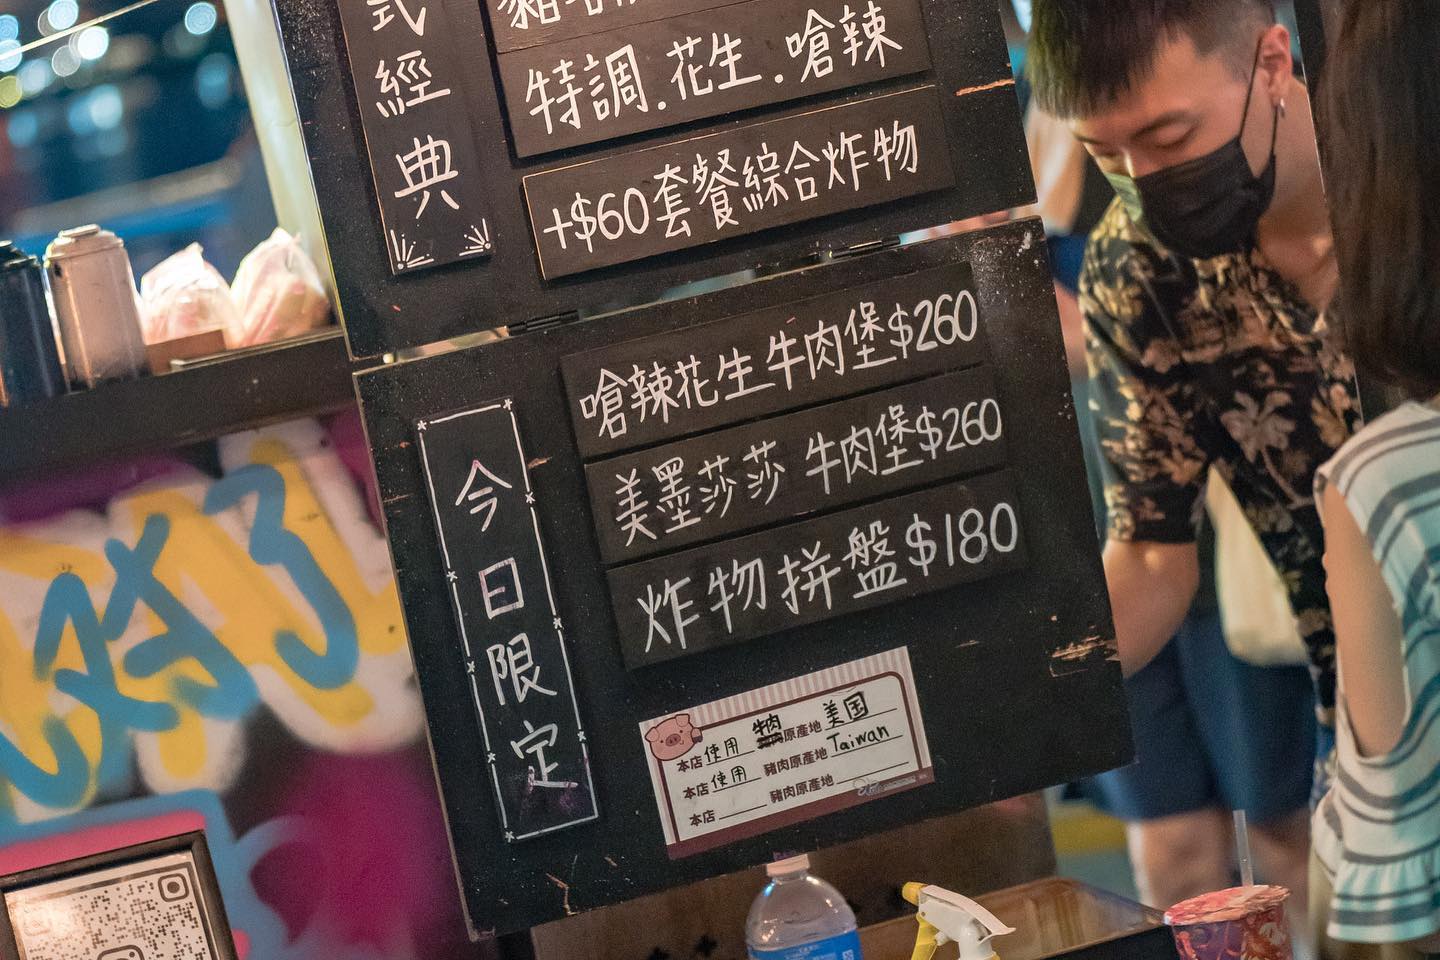 式經典
特調.花生.嗆辣
+$60套餐綜合炸物
今日限定
嗆辣花生牛肉堡$260
美墨莎莎 牛肉堡$260
炸物拼盤$180
本店使用 牛肉 原產地 美国
本店使用 豬肉原產地 Taiwan
本店 豬肉原產地